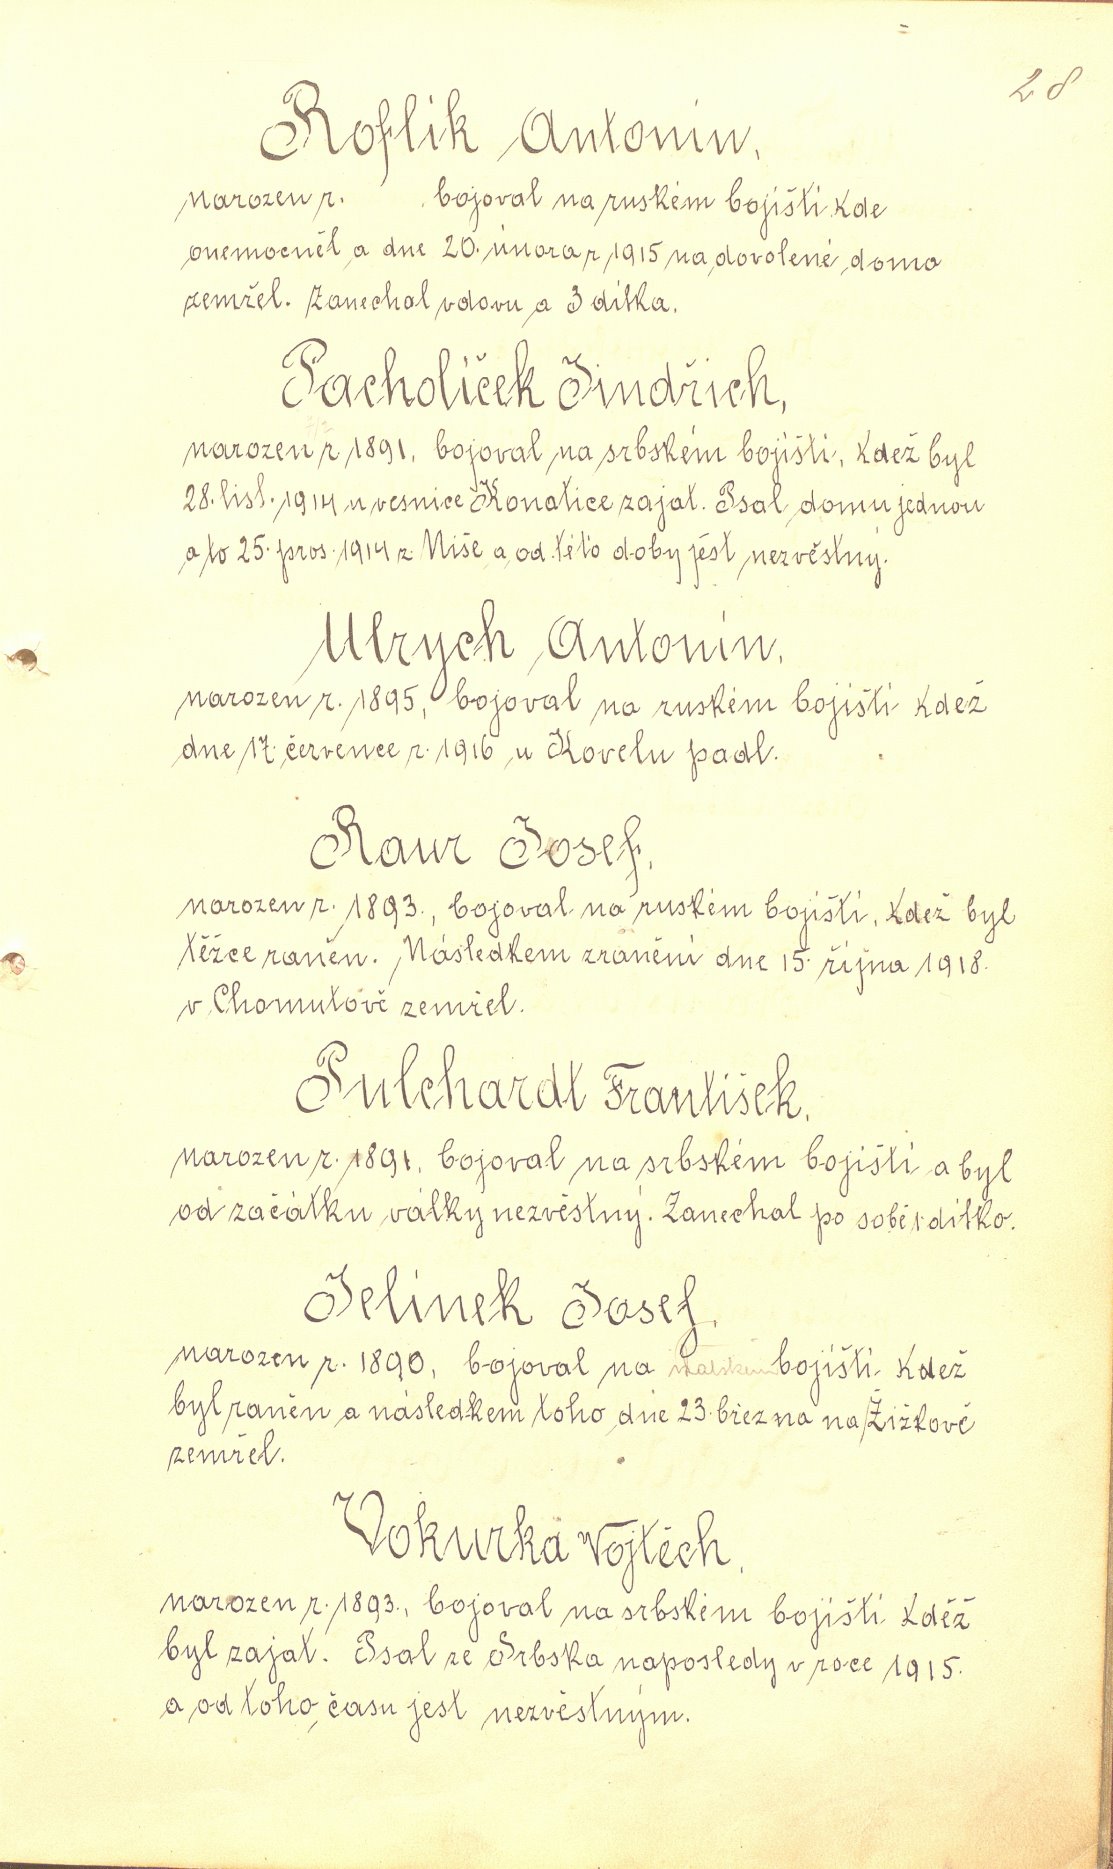 28
Roflik Antonin,
narozen r. bojoval na ruském bojišti kde
onemocněl a dne 20. února r. 1915 na dovolené doma
zemřel. Zanechal vdovu a 3 dítka.
Pacholíček Jindřich,
narozen r. 1891, bojoval na srbském bojišti, kdež byl
28. list. 1914 u vesnice Konatice zajat. Psal domu jednou
a to 25. pros. 1914 z Niše a od této doby jest nezvěstný.
Ulrych Antonín,
narozen r. 1895, bojoval na ruském bojišti kdež
dne 17. července r. 1916 u Kovelu padl.
Raur Josef,
narozen r. 1893., bojoval na ruském bojišti, kdež byl
těžce raněn. Následkem zranění dne 15. října 1918.
v Chomutově zemřel.
Pulchardt František,
narozen r. 1891, bojoval na srbském bojišti a byl
od začátku války nezvěstný. Zanechal po sobě 1 dítko.
Jelínek Josef,
narozen r. 1890, bojoval na italském bojišti kdež
byl raněn a následkem toho dne 23. března na Žižkově
zemřel.
Vokurka Vojtěch,
narozen r. 1893., bojoval na srbském bojišti kděž
byl zajat. Psal ze Srbska naposledy v roce 1915.
a od toho času jest nezvěstným.